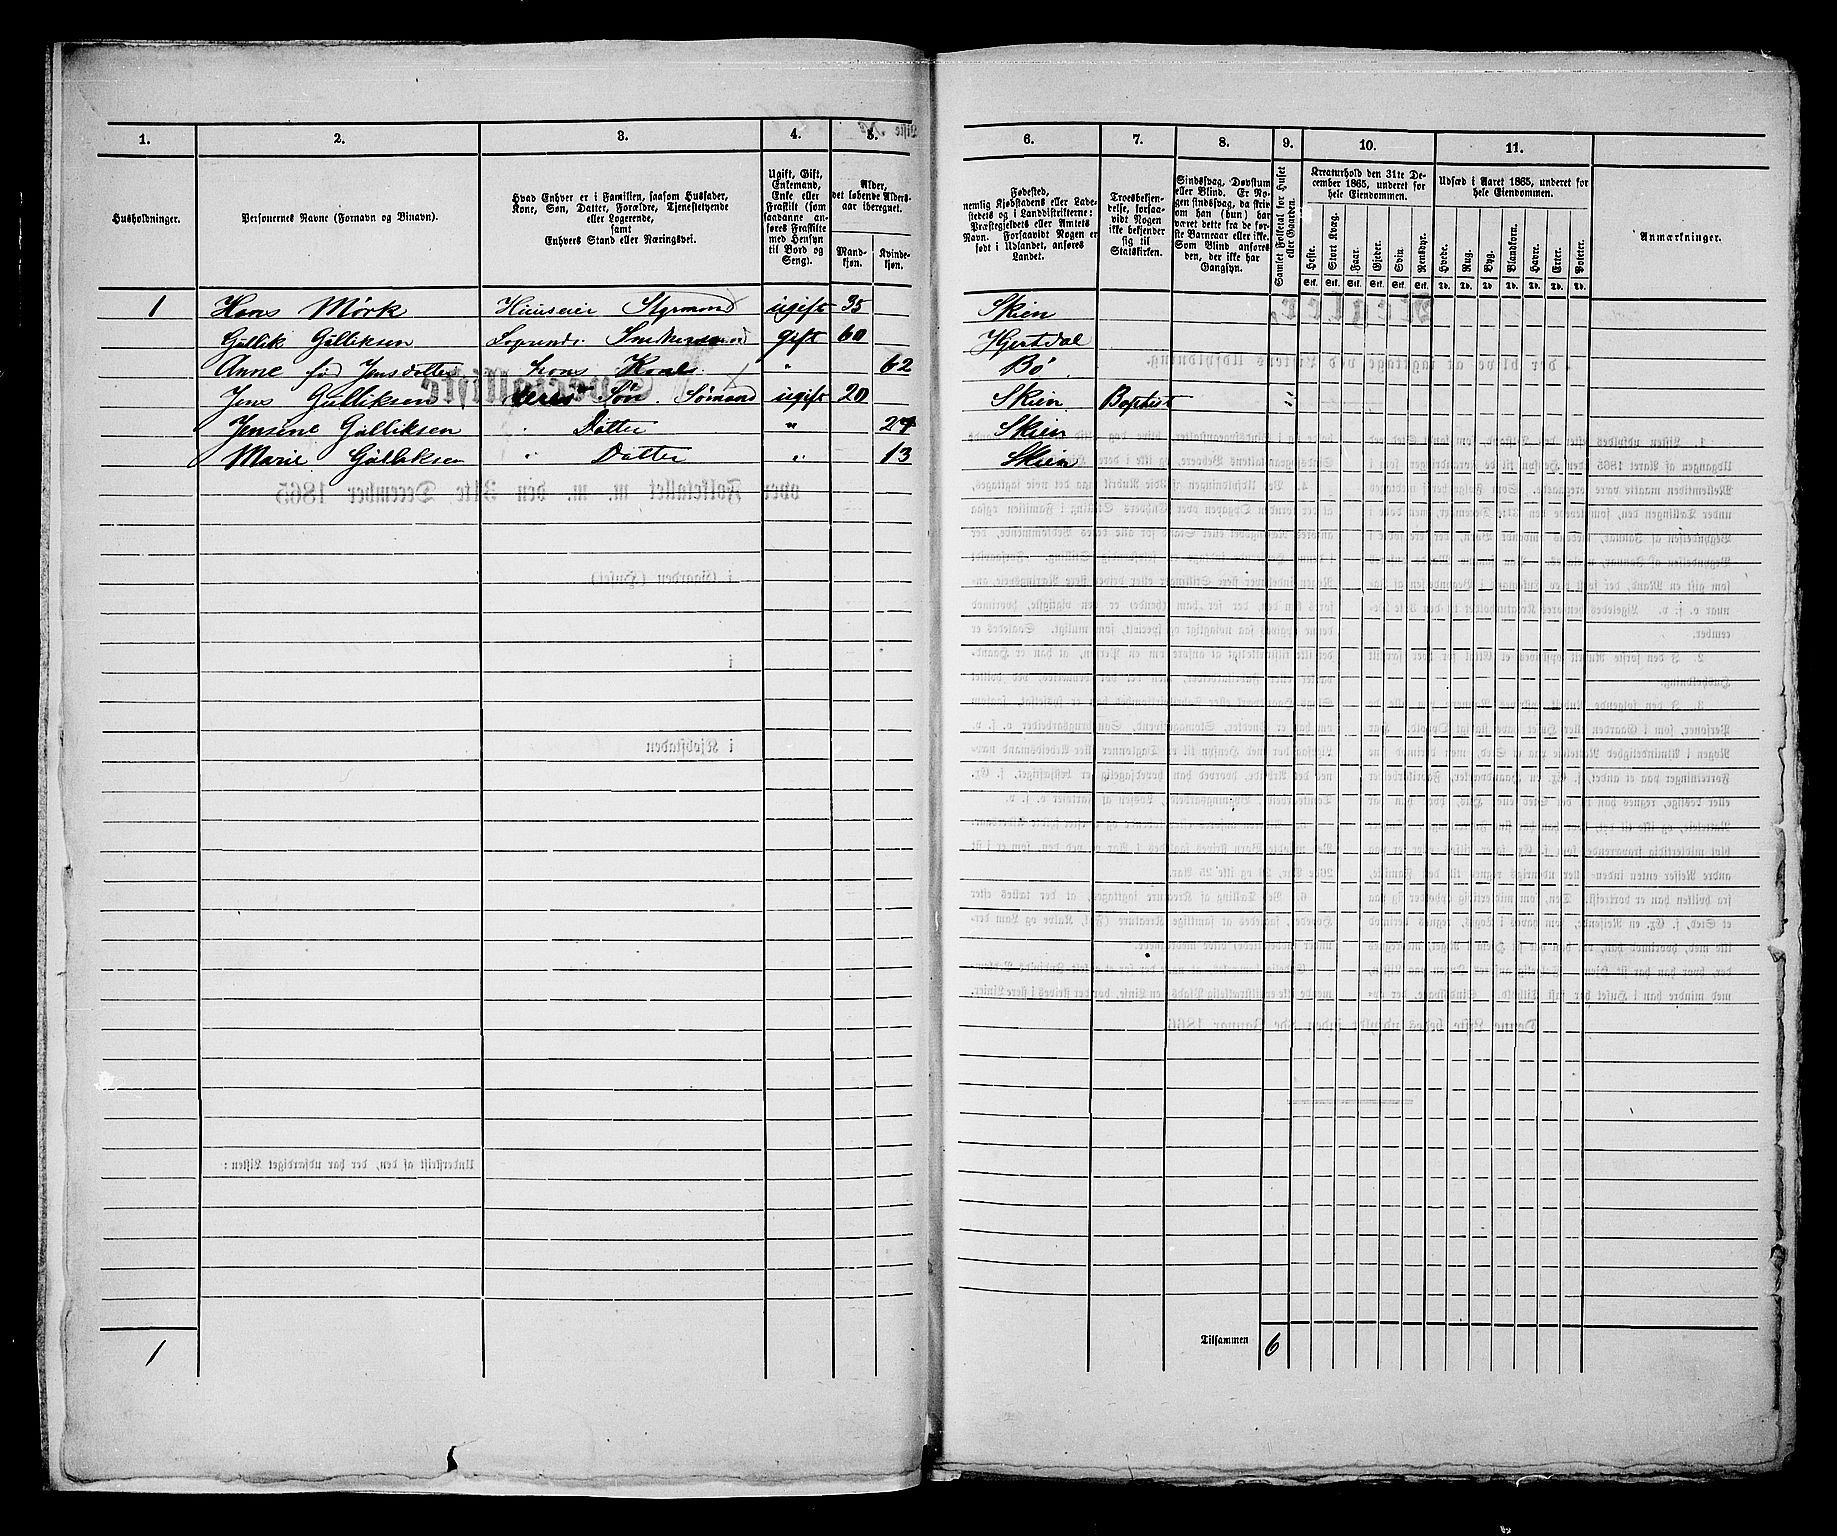 1. 2. 3. 4. 5. 6. 7. 8. 9. 10. 11.
Husholdninger.
Personernes Navne (Fornavn og Binavn).
Hvad Enhver er i Familien, saasom Husfader,
Kone, Søn, Datter, Forældre, Tjenestetyende
eller Logerende,
samt
Enhvers Stand eller Næringsvei.
Ugift, Gift,
Enkemand,
Enke eller
Fraskilt (som
saadanne an-
føres Fraskilte
med Hensyn
til Bord og
Seng).
Alder,
det løbende Alders-
aar iberegnet.
Mand-
kjøn.
Kvinde-
kjøn.
Fødested,
nemlig Kjøbstadens eller Lade-
stedets og i Landdistrikterne:
Præstegjeldets eller Amtets
Navn. Forsaavidt Nogen er
født i Udlandet, anføres
Landet.
Troesbekjen-
delse, forsaa-
vidt Nogen
ikke bekjender
sig til
Statskirken.
Sindssvag, Døvstum
eller Blind. Er No-
gen sindssvag, da skriv
om han (hun) har
været dette fra de før-
ste Barneaar eller ikke.
Som Blind anføres
den, der ikke har
Gangsyn.
Samlet Folketal for Huset
eller Gaarden.
Kreaturhold den 31te De-
cember 1865, underet for
hele Eiendommen.
Heste. Stort Kvæg. Faar. Gjeder. Svin. Rensdyr.
Stk. Stk. Stk. Stk. Stk. Stk.
Udsæd i Aaret 1865, underet for
hele Eiendommen.
Hvede. Rug. Byg. Blandkorn. Havre. Erter. Poteter.
Td. Td. Td. Td. Td. Td. Td.
Anmærkninger.
1 Hans Mørk Huuseier Styrmand ugift 35 Skien
Gullik Gulliksen Logerende gift 60 Hjertdal
Anne fød Jensdatter hans Kone " 62 Bø
Jens Gulliksen Søn Sømand ugift 20 Skien Baptist
Jensine Gulliksen " Datter " 24 Skien
Marie Gulliksen " Datter " 13 Skien
1
Tilsammen 6